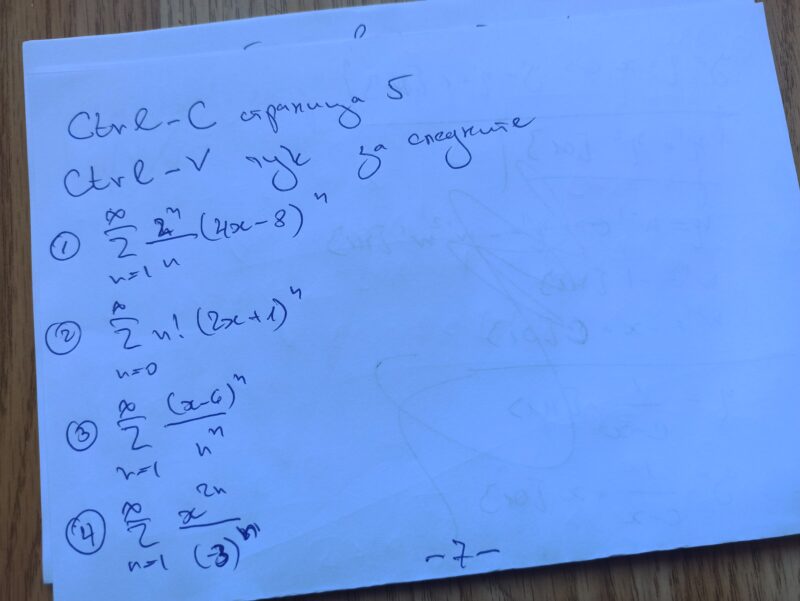 Ctrl-C страница 5
Ctrl-V тук за следните
① ∞∑n=1 2ⁿ/n (4x-8)ⁿ
② ∞∑n=0 n! (2x+1)ⁿ
③ ∞∑n=1 (x-6)ⁿ/nⁿ
④ ∞∑n=1 x²ⁿ/(-3)ⁿ
-7-